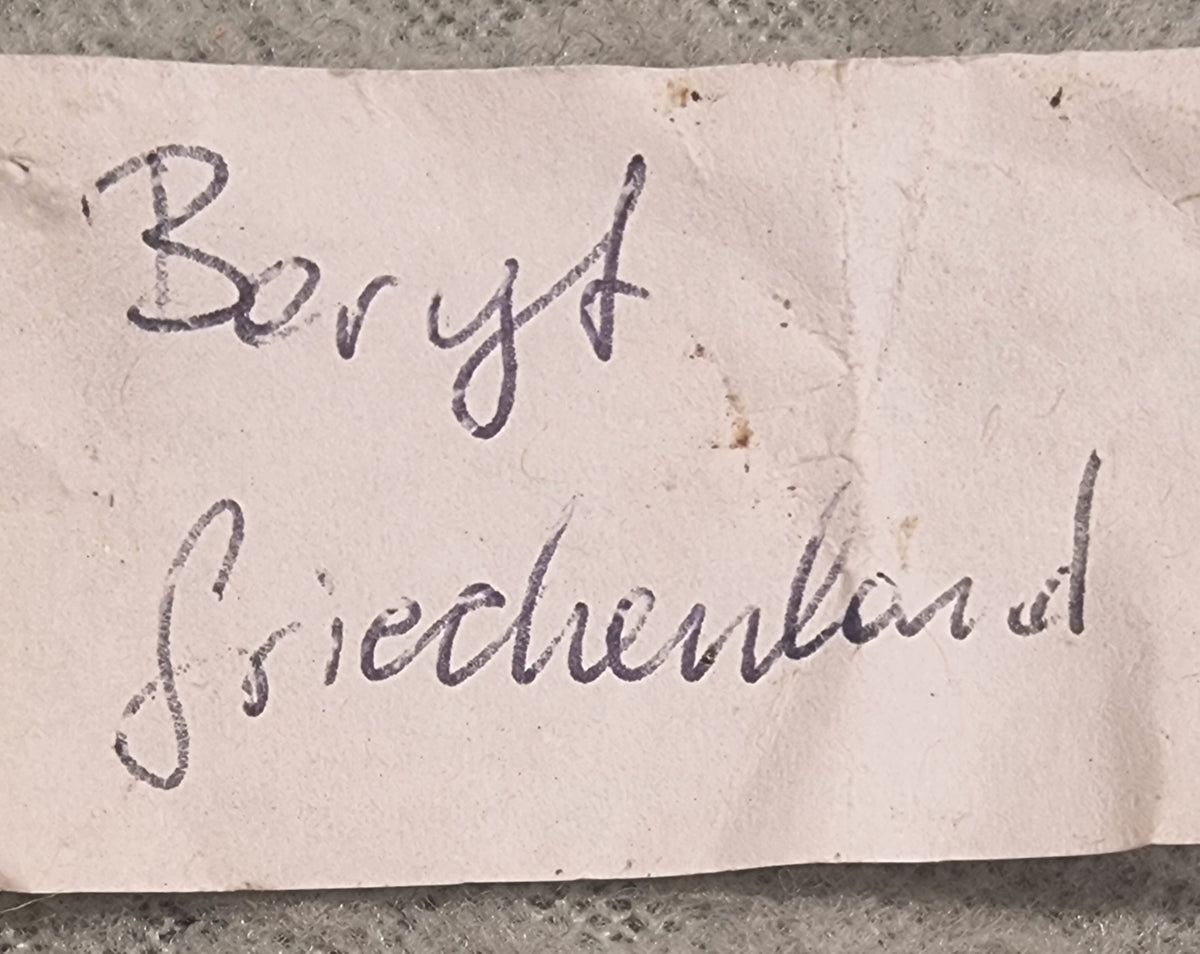 Baryt
Griechenland